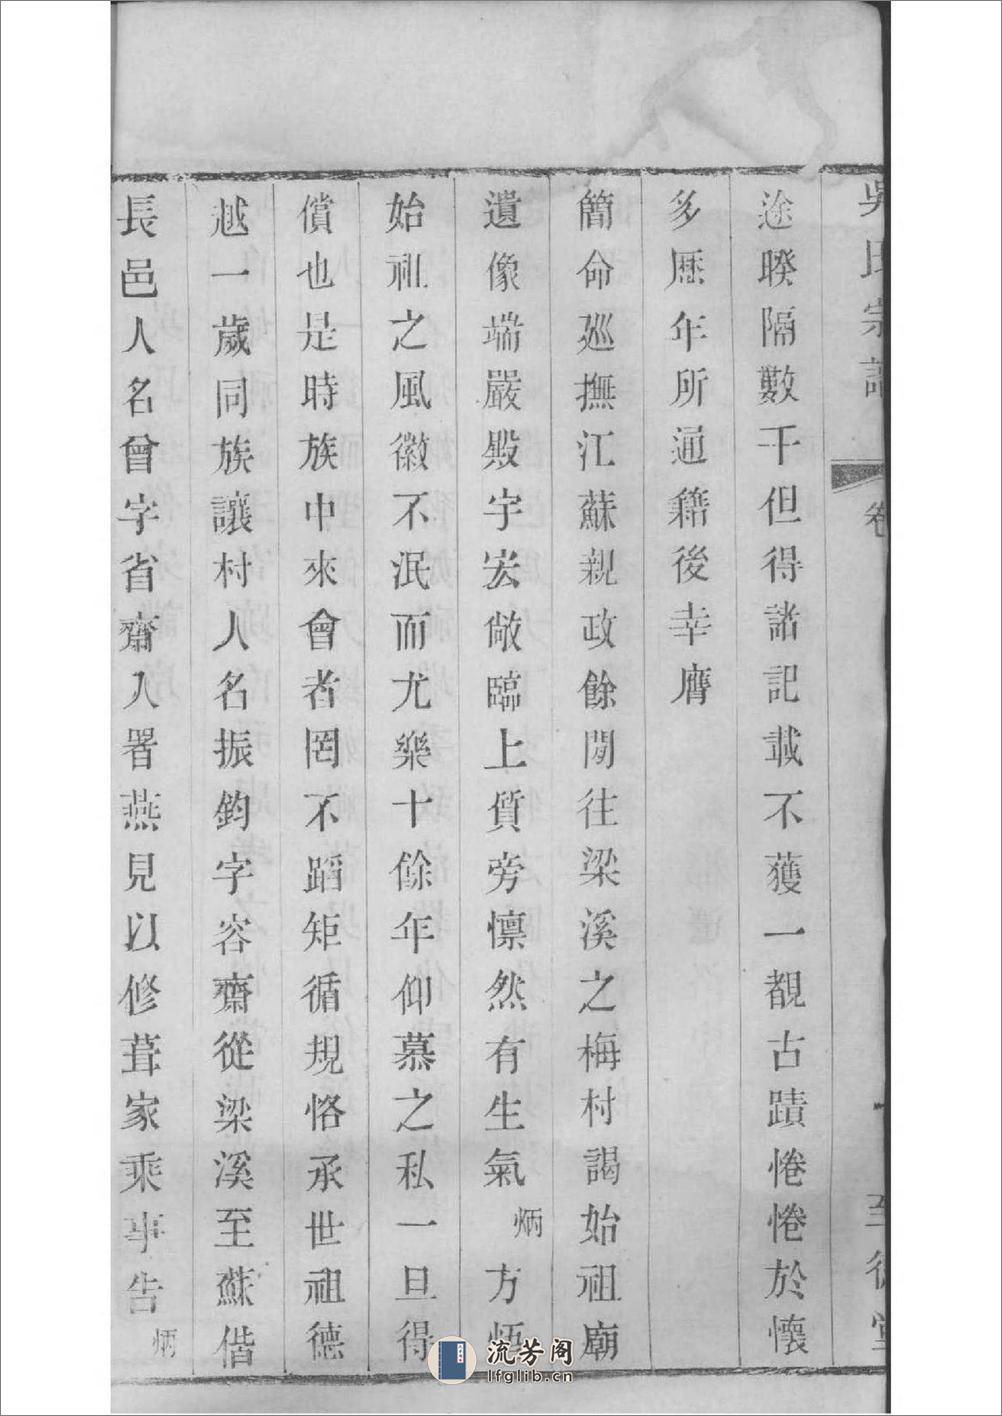 吳氏宗譜 卷 至德堂
途暌隔數千但得諸記載不獲一覩古蹟惓惓於懷
多歷年所通籍後幸膺
簡命巡撫江蘇親政餘閒往梁溪之梅村謁始祖廟
遺像端嚴殿宇宏敞臨上質旁懍然有生氣炳方悟
始祖之風徽不泯而尤樂十餘年仰慕之私一旦得
償也是時族中來會者罔不蹈矩循規恪承世祖德
越一歲同族讓村人名振鈞字容齋從梁溪至蘇偕
長邑人名曾字省齋入署燕見以修葺家乘事告炳
流芳阁
lfglib.cn